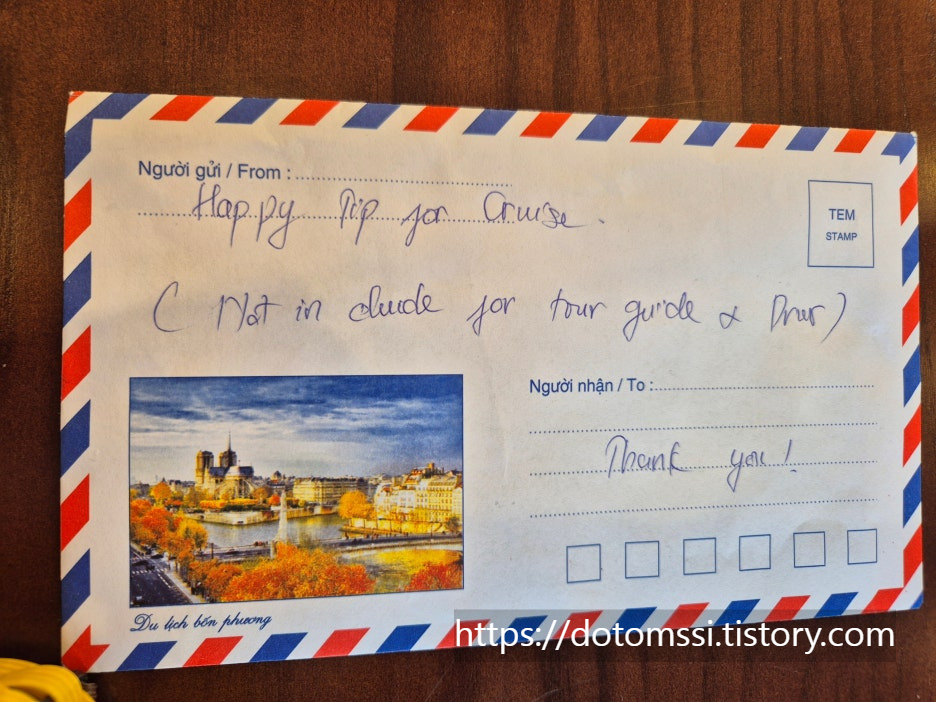 Người gửi / From :
Happy Tip for Cruise.
TEM
STAMP
( Not in clude for tour guide & Driver )
Người nhận / To :
Thank you!
Du lịch bốn phương
https://dotomssi.tistory.com